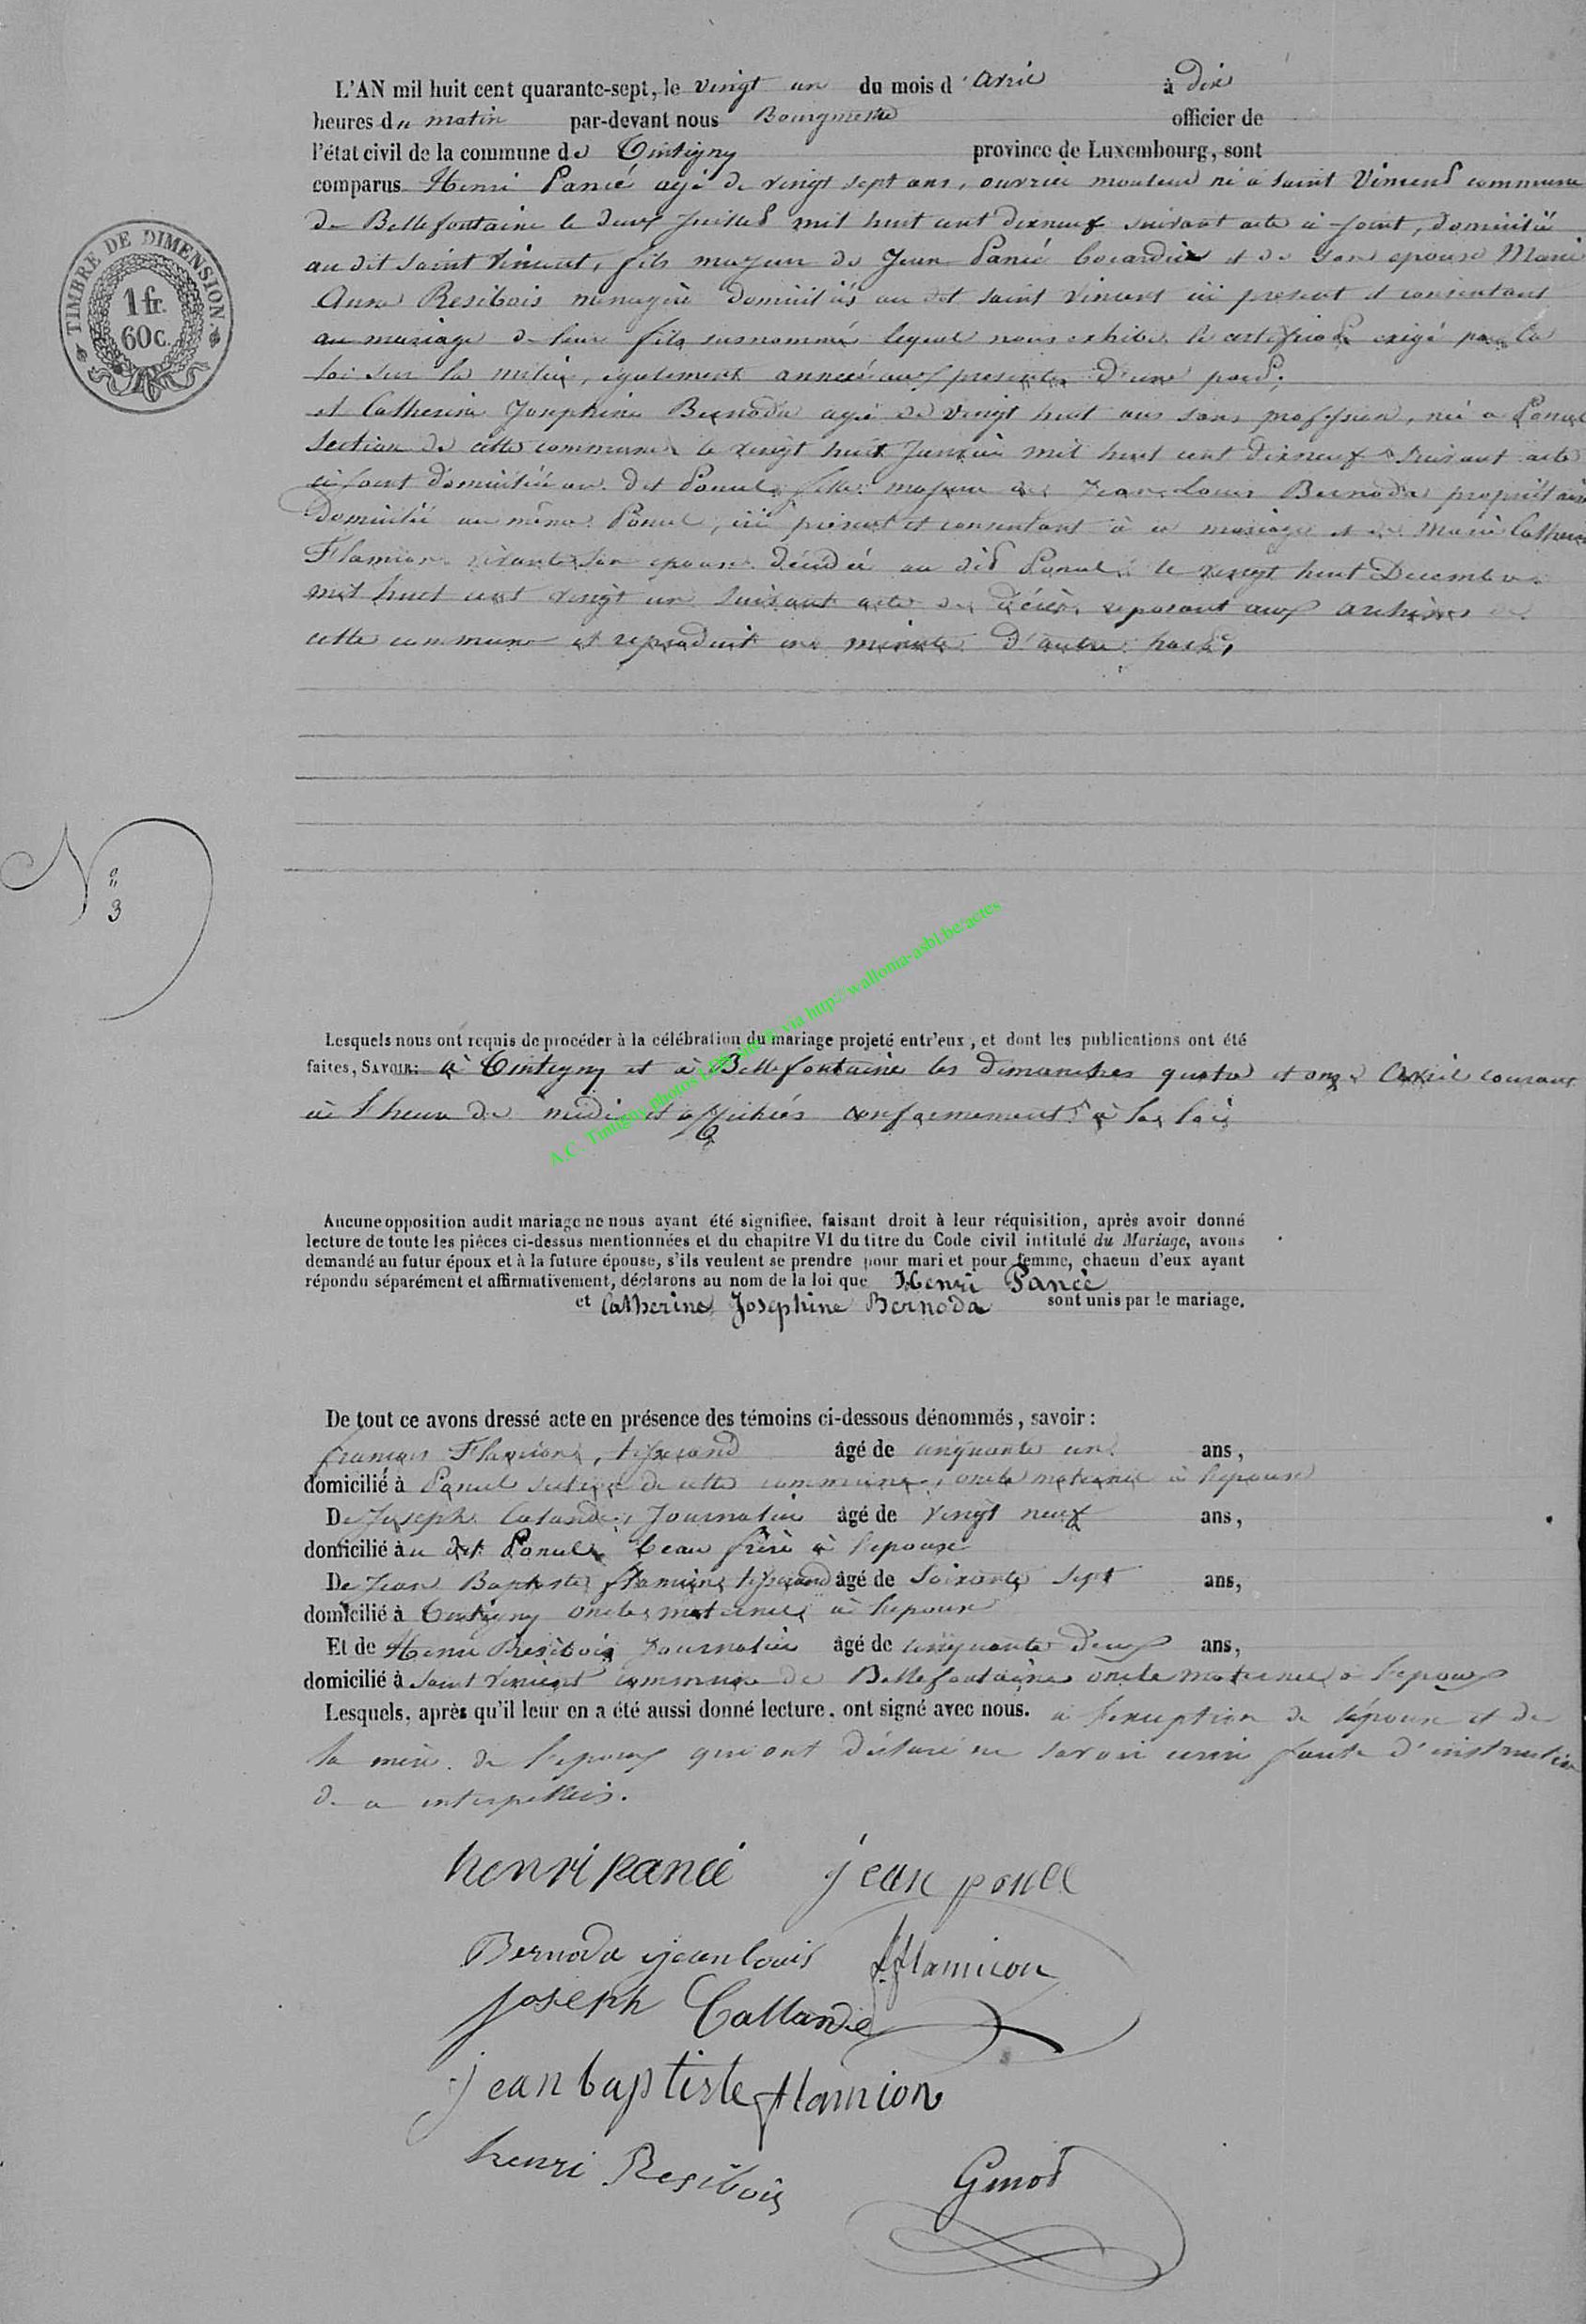 L'AN mil huit cent quarante-sept, le vingt un du mois d'avril à dix
heures du matin par-devant nous Bourgmestre officier de
l'état civil de la commune de Tintigny province de Luxembourg, sont
comparus Henri Pancé agé de vingt sept ans, ouvrier mouleur né à Saint Vincent commune
de Bellefontaine le deux Juillet mil huit cent dixneuf suivant acte ci-joint, domicilié
au dit Saint Vincent, fils majeur de Jean Pancé bocardier et de son epouse Marie
Anne Resibois menagère domiciliés au dit Saint Vincent ici present et consentant
au mariage de leur fils susnommé lequel nous exhibe le certificat exigé par la
loi sur la milice, également annexé aux presentes d'une part;
et Catherine Josephine Bernoda agée de vingt huit ans sans profession, née a Ponsel
section de cette commune le vingt huit Janvier mil huit cent dixneuf suivant acte
ci joint domiciliée au dit fille majeure de Jean Louis Bernoda propriétaire
domicilié au même , ici présent et consentant à ce mariage et de Marie Catherine
Flamion vivante son epouse décédée au dit le vingt huit Decembre
mil huit cent vingt un suivant acte de décès reposant aux archives de
cette commune et reproduit en minute d'autre part,
TIMBRE DE DIMENSION
1 fr.
60 c.
N°
3
Lesquels nous ont requis de procéder à la célébration du mariage projeté entr'eux, et dont les publications ont été
faites, SAVOIR: à Tintigny et à Bellefontaine les dimanches quatre et onze Avril courant
à l'heure de midi et affichés conformement à la loi
A.C. Tintigny photos via http://wallonia-asbl.be/actes
Aucune opposition audit mariage ne nous ayant été signifiée, faisant droit à leur réquisition, après avoir donné
lecture de toute les pièces ci-dessus mentionnées et du chapitre VI du titre du Code civil intitulé du Mariage, avons
demandé au futur époux et à la future épouse, s'ils veulent se prendre pour mari et pour femme, chacun d'eux ayant
répondu séparément et affirmativement, déclarons au nom de la loi que Henri Pancé
et Catherine Josephine Bernoda sont unis par le mariage.
De tout ce avons dressé acte en présence des témoins ci-dessous dénommés, savoir:
François Flamion, tisserand âgé de cinquante un ans,
domicilié à section de cette commune, oncle maternel à l'epouse
De Joseph Calande, Journalier âgé de vingt neuf ans,
domicilié au dit beau frère à l'epouse
De Jean Baptiste Flamion tisserand âgé de Soixante sept ans,
domicilié à Tintigny oncle maternel à l'epouse
Et de Henri Resibois Journalier âgé de cinquante deux ans,
domicilié à Saint Vincent commune de Bellefontaine oncle maternel à l'epoux
Lesquels, après qu'il leur en a été aussi donné lecture, ont signé avec nous. à l'exception de l'épouse et de
la mère de l'epoux qui ont déclaré ne savoir ecrire faute d'instruction
de ce interpellés.
henri pancé jean poncé
Bernoda jean louis f. flamion
joseph Callande
jean baptiste flamion
henri Resibois